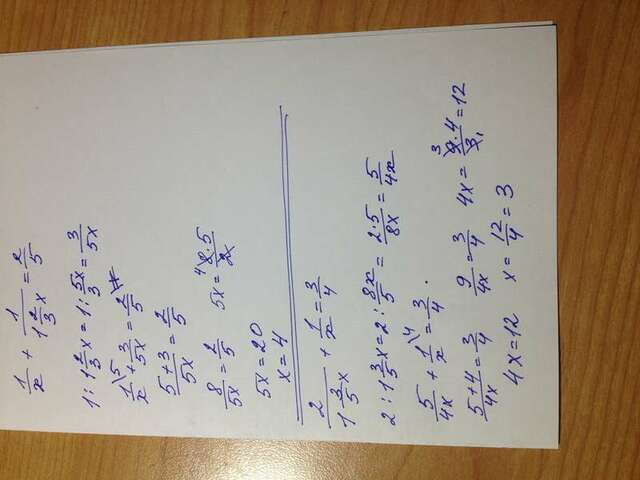 1/x + 1/(1 2/3 x) = 2/5
1 : 1 2/3 x = 1 : 5x/3 = 3/5x
1/x \5 + 3/5x = 2/5
(5+3)/5x = 2/5
8/5x = 2/5 5x = 4 8·5/2
5x = 20
x = 4
2/(1 3/5 x) + 1/x = 3/4
2 : 1 3/5 x = 2 : 8x/5 = 2·5/8x = 5/4x
5/4x + 1/x \4 = 3/4 .
(5+4)/4x = 3/4 9/4x = 3/4 4x = 3 9·4/3 1 = 12
4x = 12 x = 12/4 = 3